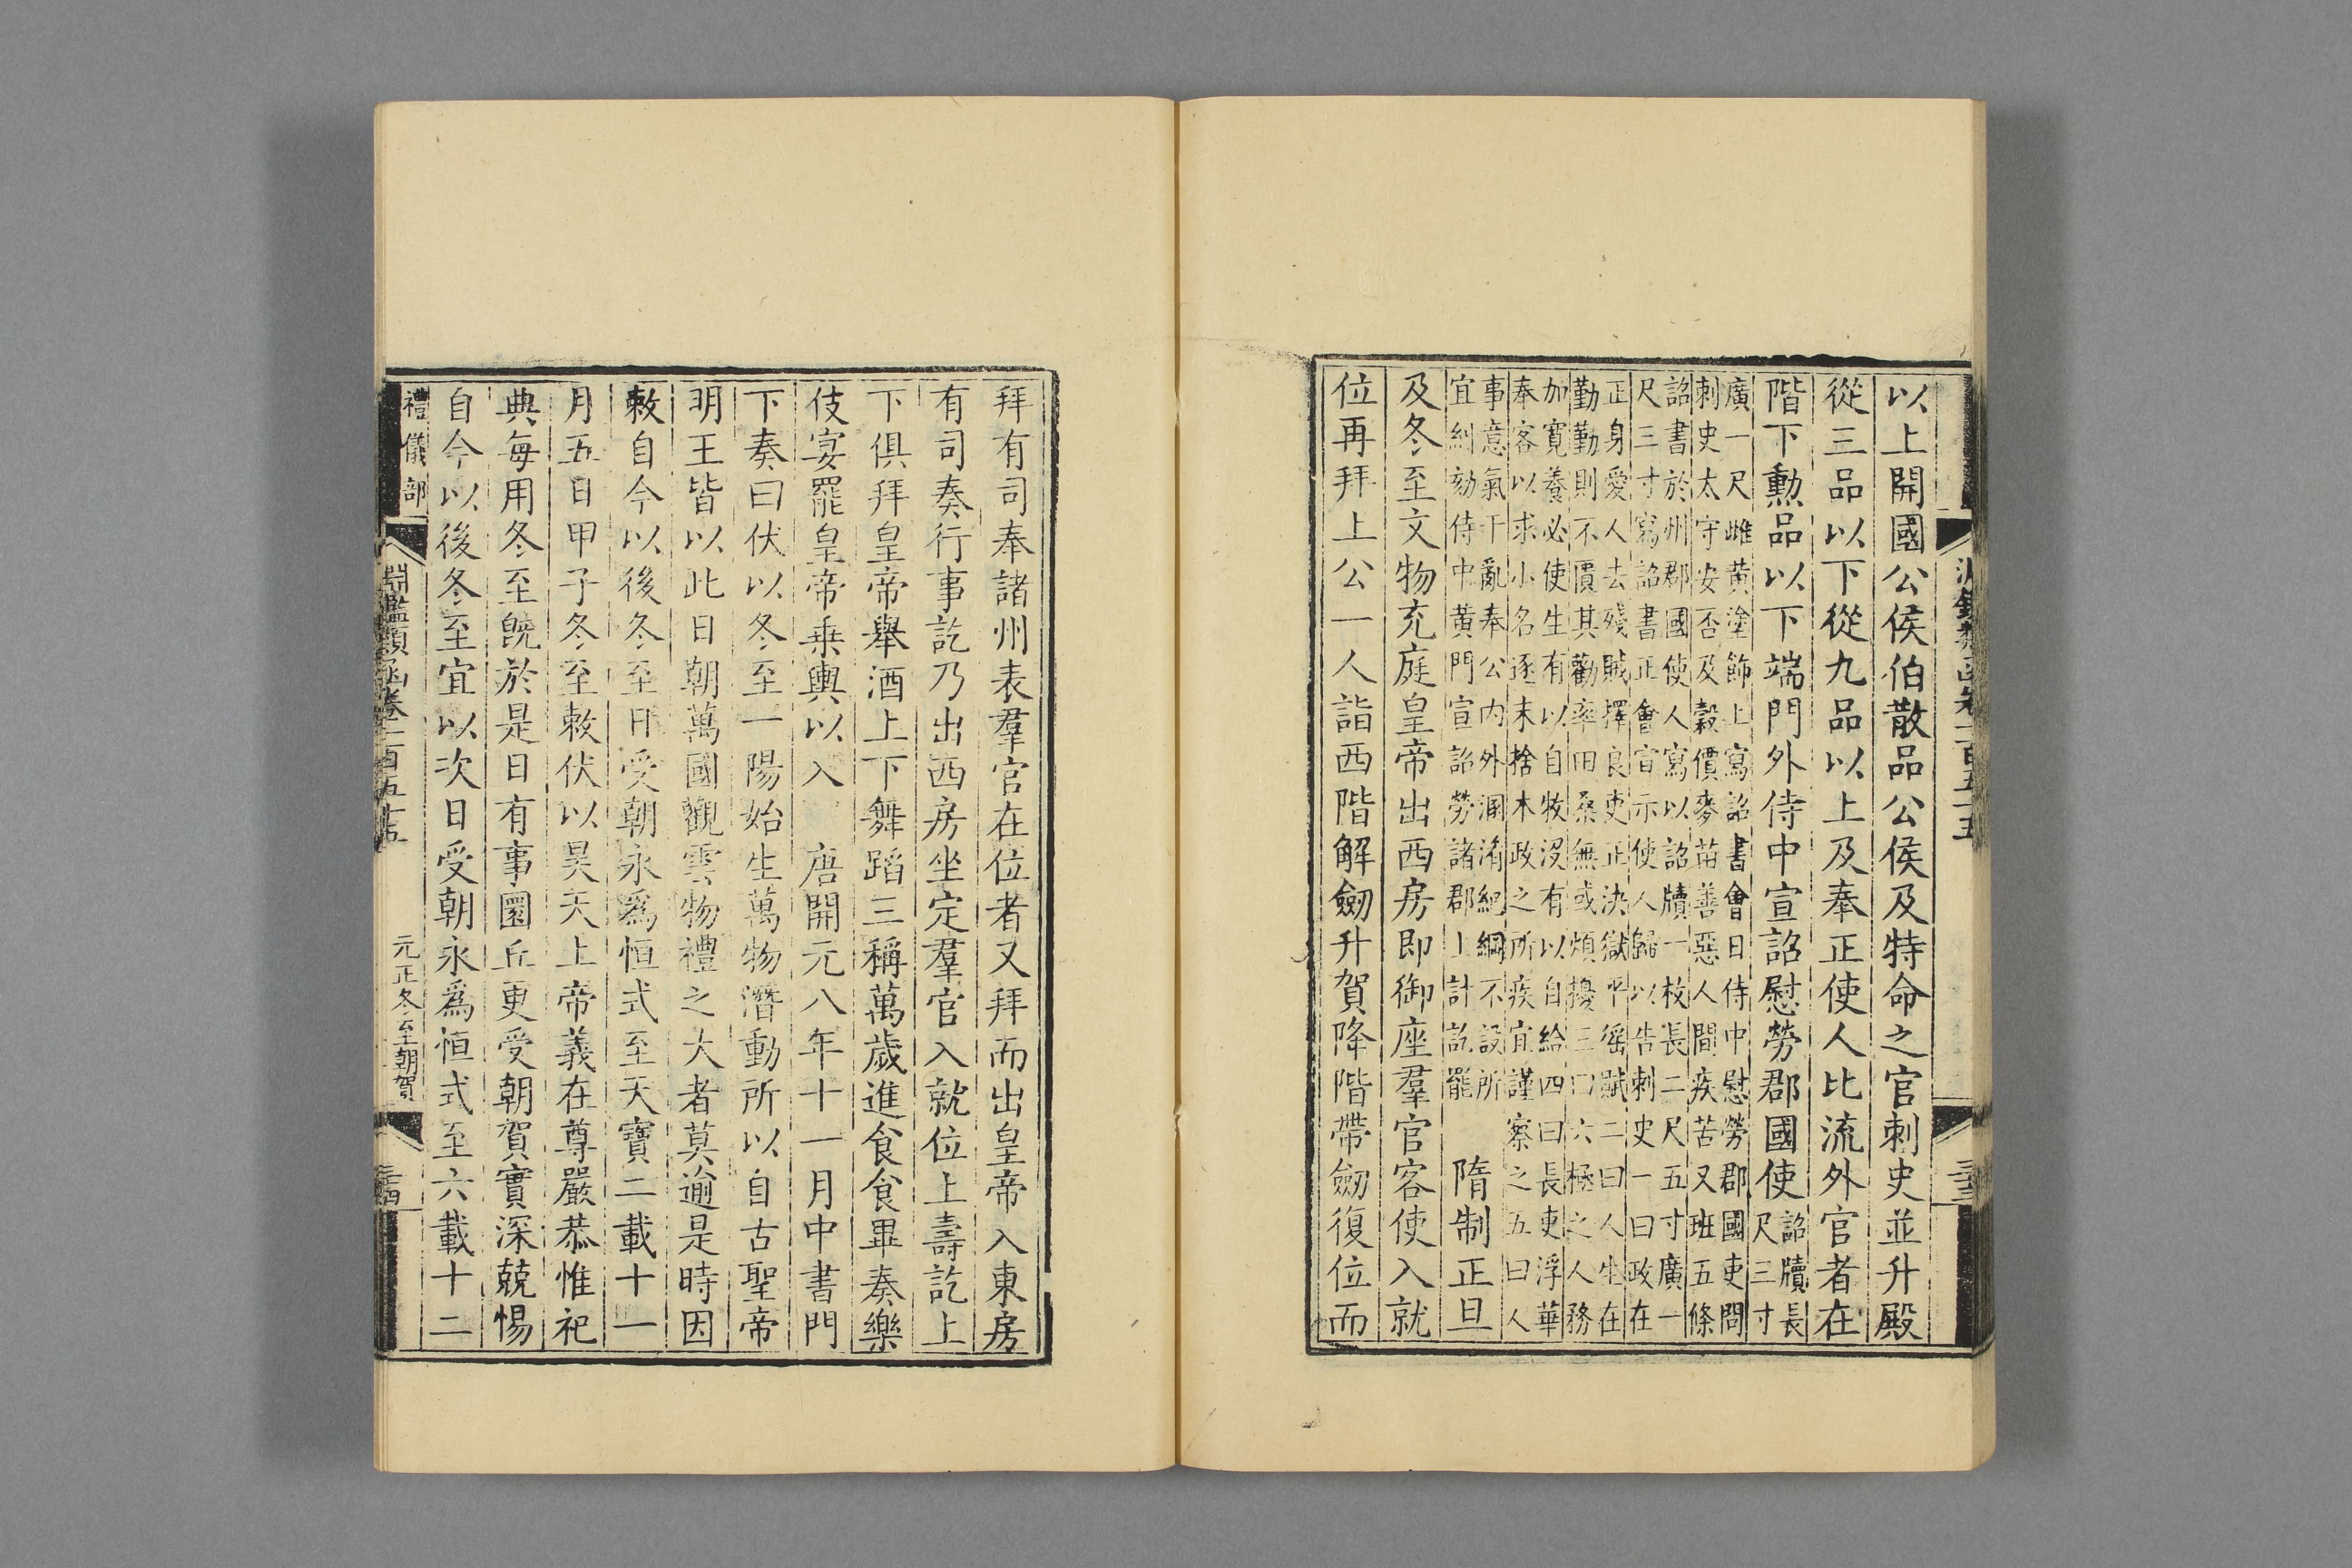 以上開國公侯伯散品公侯及特命之官刺史並升殿
從三品以下從九品以上及奉正使人比流外官者在
階下勲品以下端門外侍中宣詔慰勞郡國使詔牘長
尺三寸
廣一尺雌黄塗飾上寫詔書會日侍中慰勞郡國吏問
刺史太守安否及穀價麥苗善惡人間疾苦又班五條
詔書於州郡國使人寫以詔牘一枚長二尺五寸廣一
尺三寸寫詔書正會宣示使人歸以告刺史一曰政在
正身愛人去殘賊擇良吏正決獄平徭賦二曰人生在
勤勤則不匱其勸率田桑無或煩擾三曰六極之人務
加寛養必使生有以自牧沒有以自給四曰長吏浮華
奉客以求小名逐末捨本政之所疾宜謹察之五曰人
事意氣干亂奉公内外溷淆紀綱不設所
宜糾劾侍中黄門宣詔勞諸郡上計訖罷
隋制正旦
及冬至文物充庭皇帝出西房即御座羣官客使入就
位再拜上公一人詣西階解劒升賀降階帶劒復位而
拜有司奉諸州表羣官在位者又拜而出皇帝入東房
有司奏行事訖乃出西房坐定羣官入就位上壽訖上
下俱拜皇帝舉酒上下舞蹈三稱萬歲進食食畢奏樂
伎宴罷皇帝乗輿以入 唐開元八年十一月中書門
下奏曰伏以冬至一陽始生萬物潛動所以自古聖帝
明王皆以此日朝萬國觀雲物禮之大者莫逾是時因
敕自今以後冬至日受朝永爲恒式至天寶二載十一
月五日甲子冬至敕伏以昊天上帝義在尊嚴恭惟祀
典每用冬至旣於是日有事圜丘更受朝賀實深兢惕
自今以後冬至宜以次日受朝永爲恒式至六載十二
禮儀部
淵鑑類函卷一百五十五
元正冬至朝賀